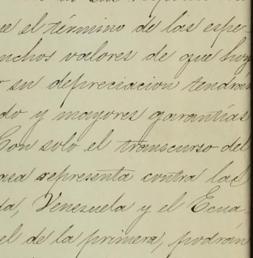 e el término de las espe-
muchos valores de que hoy
su depreciacion tendran
do y mayores garantías
Con solo el transcurso del
representa contra las
da, Venezuela y el Ecua-
el de la primera, podrán